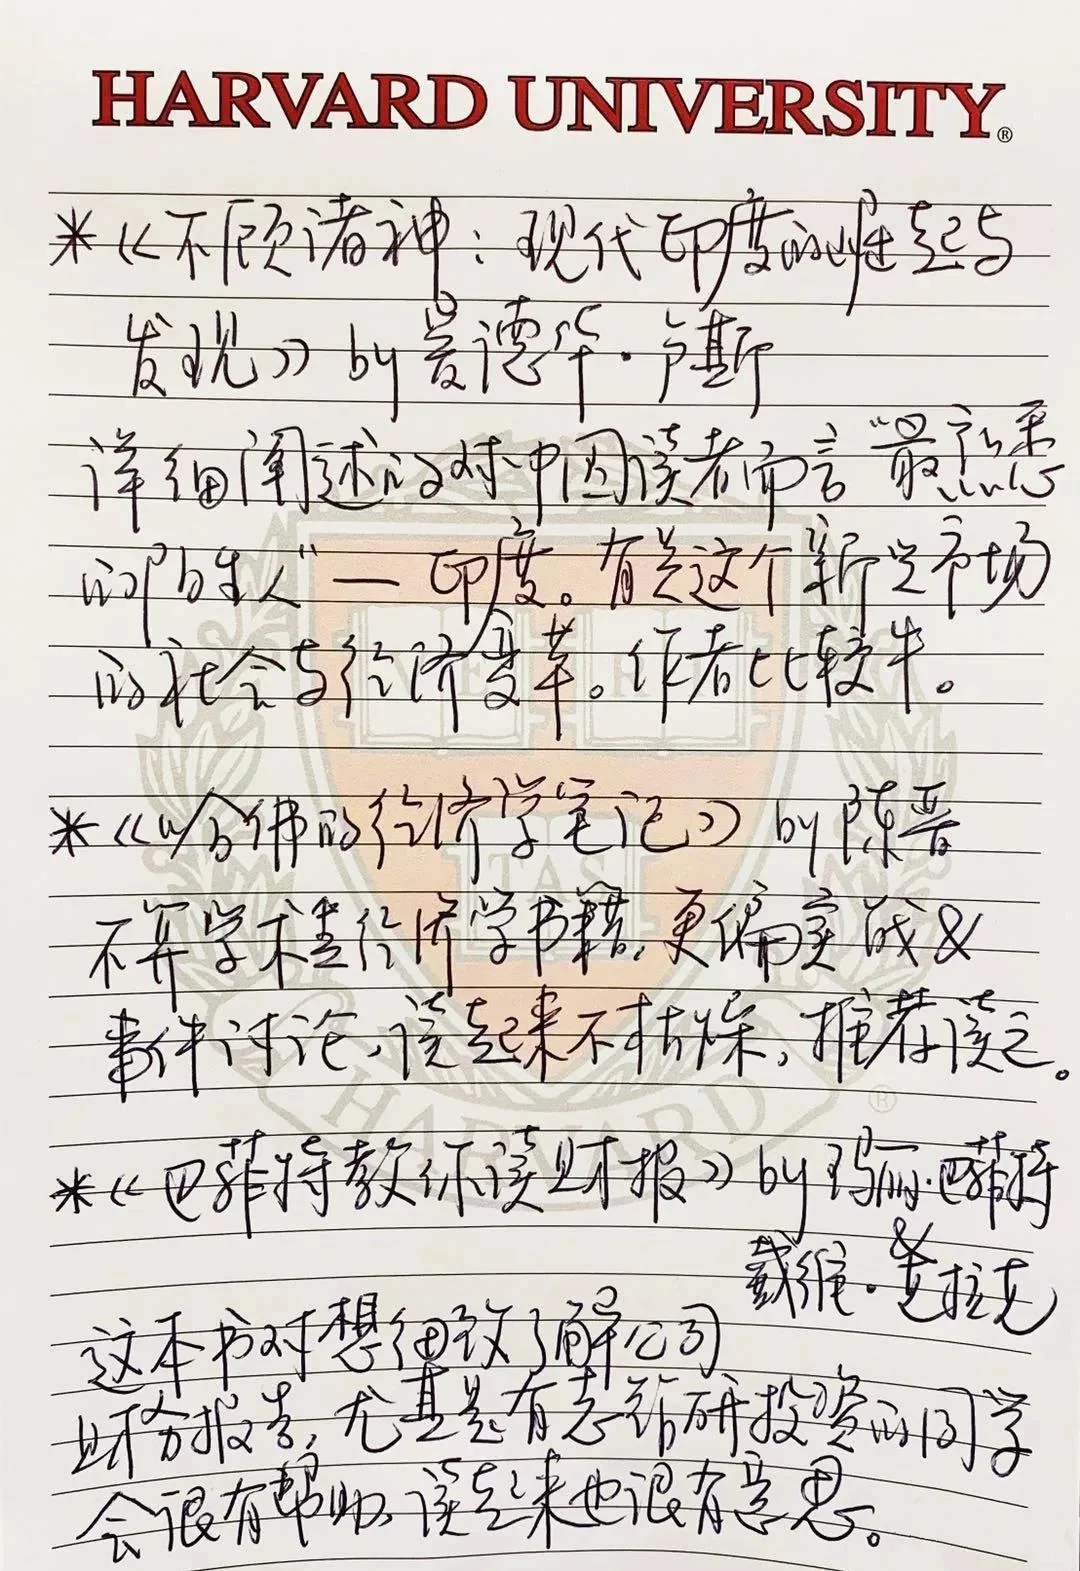 HARVARD UNIVERSITY®
*《不顾诸神：现代印度的崛起与
发现》by 爱德华·卢斯
详细阐述的对中国读者而言“最熟悉
的陌生人”— 印度。有关这个新兴市场
的社会与经济变革。作者比较牛。
*《哈佛的经济学笔记》by 陈晋
不算学术类经济学书籍，更偏实战&
事件讨论，读起来不枯燥，推荐读之。
*《巴菲特教你读财报》by 玛丽·巴菲特
&
戴维·克拉克
这本书对想细致了解公司
财务报告，尤其是有志钻研投资的同学
会很有帮助，读起来也很有意思。
VE RI
TAS
HARVARD
®